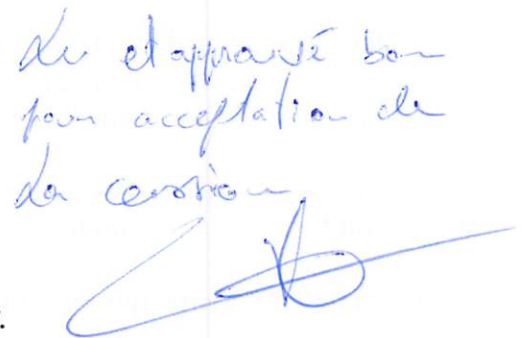 Lu et approuvé bon
pour acceptation de
La cession